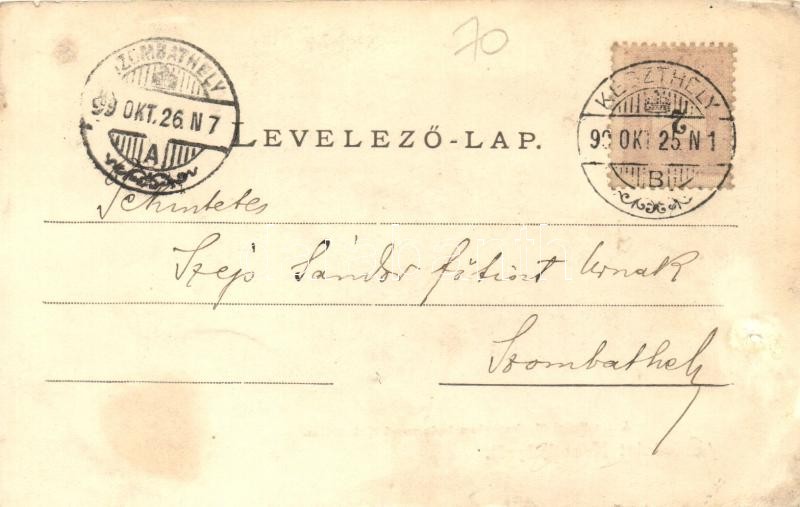 70
SZOMBATHELY
99 OKT. 26. N 7
A
KESZTHELY
2
99 OKT 25 N 1
B
LEVELEZŐ-LAP.
Tekintetes
Szép Sándor főtiszt Urnak
Szombathely